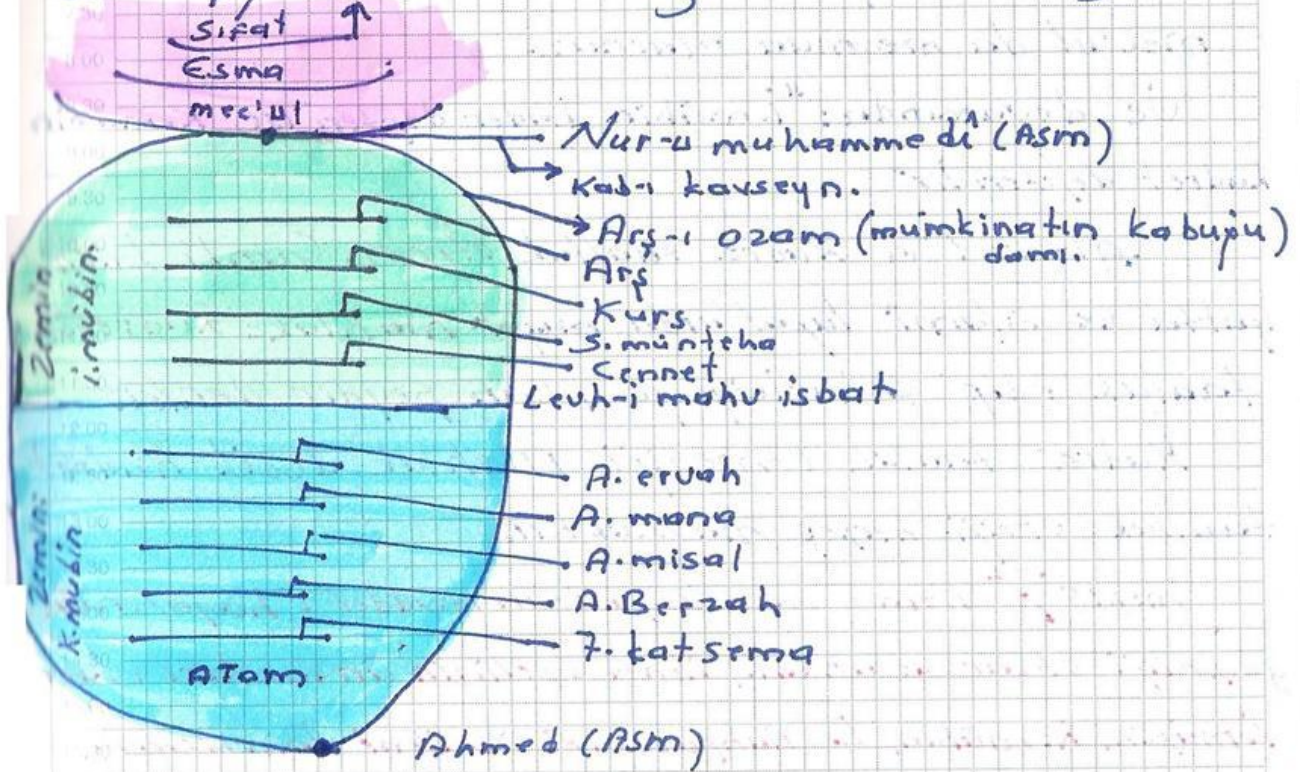 Sıfat
Esma
mec'ul
Nur-u muhammedî (Asm)
Kab-ı kavseyn.
Arş-ı azam (mümkinatın kabuğu)
damı.
Arş
Kurs
S. münteha
Cennet
Levh-i mahv isbat
Zemin
i. mübin
A. ervah
A. mana
A. misal
A. Berzah
7. kat sema
Zemin
K. mübin
ATom
Ahmed (Asm)